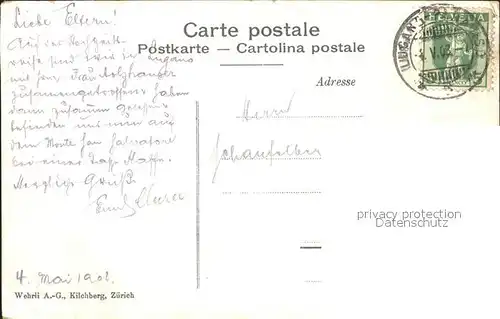 Liebe Eltern!
Auf der Hochzeits-
reise sind wir in Lugano
mit Frau Holzhauser
zusammengetroffen haben
dann zusammen
befinden uns nun auf
dem Monte San Salvatore
bei einer Tasse Kaffe.
Herzlich Grüß
4. Mai 1908.
Wehrli A.-G., Kilchberg, Zürich
Carte postale
Postkarte — Cartolina postale
Adresse
Herrn
Schaufelber
HELVETIA
LUGANO
privacy protection
Datenschutz